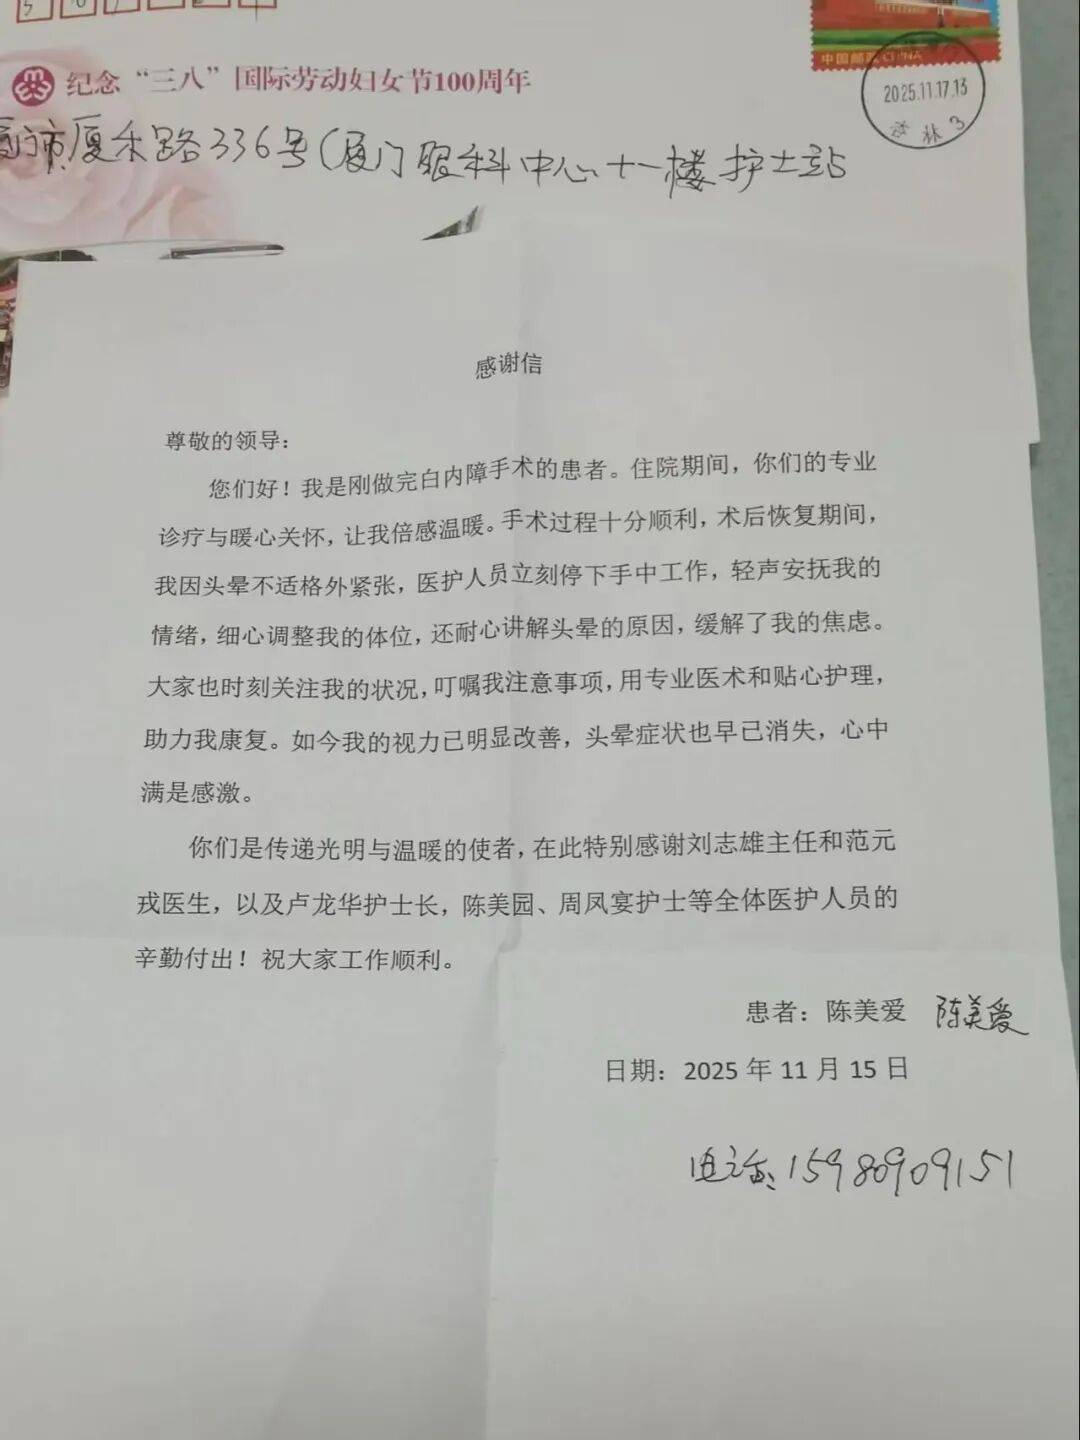 中国邮政 CHINA
纪念“三八”国际劳动妇女节100周年
2025.11.17.13
杏林3
厦门市厦禾路336号(厦门眼科中心十一楼护士站
感谢信
尊敬的领导：
您们好！我是刚做完白内障手术的患者。住院期间，你们的专业
诊疗与暖心关怀，让我倍感温暖。手术过程十分顺利，术后恢复期间，
我因头晕不适格外紧张，医护人员立刻停下手中工作，轻声安抚我的
情绪，细心调整我的体位，还耐心讲解头晕的原因，缓解了我的焦虑。
大家也时刻关注我的状况，叮嘱我注意事项，用专业医术和贴心护理，
助力我康复。如今我的视力已明显改善，头晕症状也早已消失，心中
满是感激。
你们是传递光明与温暖的使者，在此特别感谢刘志雄主任和范元
戎医生，以及卢龙华护士长，陈美园、周凤宴护士等全体医护人员的
辛勤付出！祝大家工作顺利。
患者：陈美爱 陈美爱
日期：2025年11月15日
电话：15980909151